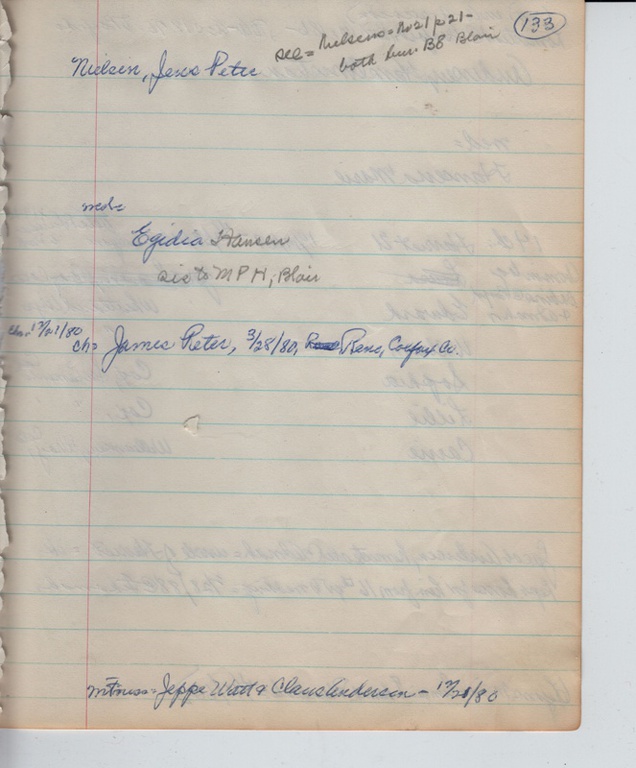 133
see = Nielsens = No 21 p 21 -
both bur. BB Blair
Nielsen, Jens Peter
md =
Egidia Hansen
sis to M P H, Blair
chr. 12/21/80
ch = James Peter, 3/28/80, Rene, Colfax Co.
witness = Jeppe Watt & Claus Anderson - 12/21/80